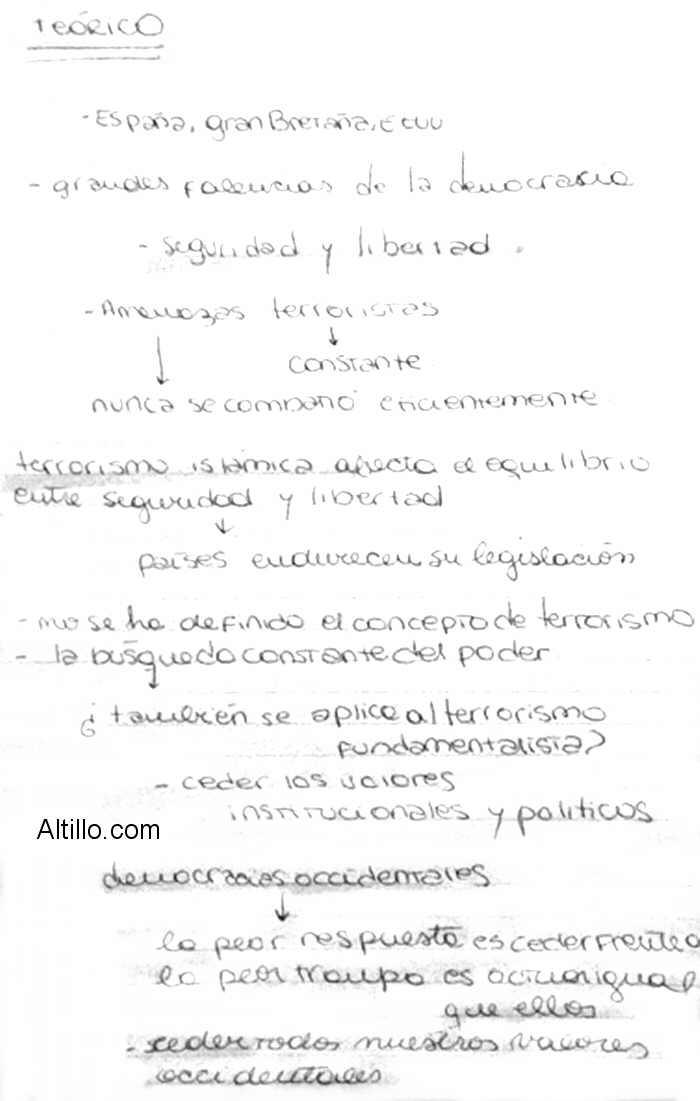 TEÓRICO
- España, gran Bretaña, EEUU
- grandes falencias de la democracia
- seguridad y libertad.
- Amenazas terroristas
constante
nunca se combatió eficientemente
terrorismo islámica afecta el equilibrio
entre seguridad y libertad
países endurecen su legislación
- no se ha definido el concepto de terrorismo
- la búsqueda constante del poder
¿ también se aplica al terrorismo
fundamentalista?
- ceder los valores
institucionales y políticos
Altillo.com
democracias occidentales
la peor respuesta es ceder frente a
la peor trampa es actuar igual
que ellos
- ceder todos nuestros valores
occidentales